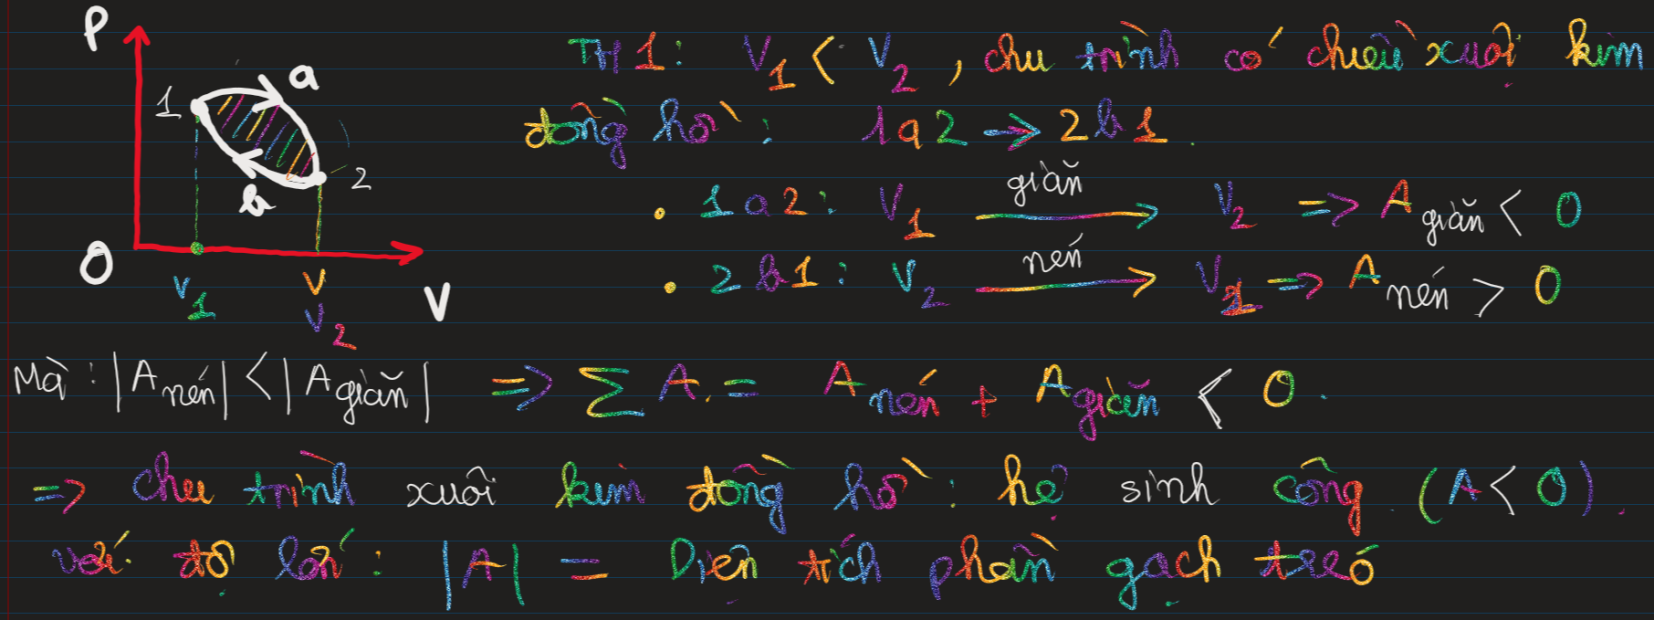 P
a
1
2
b
O
V₁
V
V₂
V
TH1: V₁ < V₂, chu trình có chiều xuôi kim
đồng hồ: 1a2 → 2b1.
• 1a2: V₁ giãn → V₂ => A giãn < 0
• 2b1: V₂ nén → V₁ => A nén > 0
Mà: |A nén| < |A giãn| => ∑ A = A nén + A giãn < 0.
=> chu trình xuôi kim đồng hồ: hệ sinh công (A < 0).
với độ lớn: |A| = Diện tích phần gạch treó